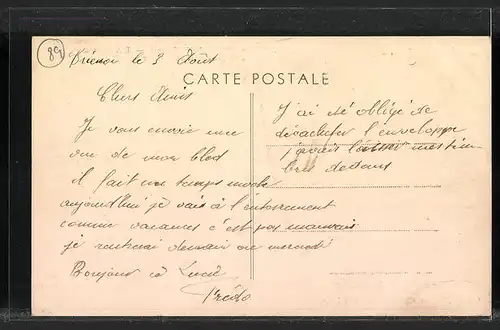 89
le 3 Août
CARTE POSTALE
Chers Amis
Je vous envoie une
vue de mon bled
il fait un temps moche
aujourd'hui je vais à l'enterrement
comme vacances c'est pas mauvais
je rentrerai demain ou mercredi
Bonjour à Lucie
J'ai été obligé de
décacheter l'enveloppe
j'avais laissé mes tim
bres dedans